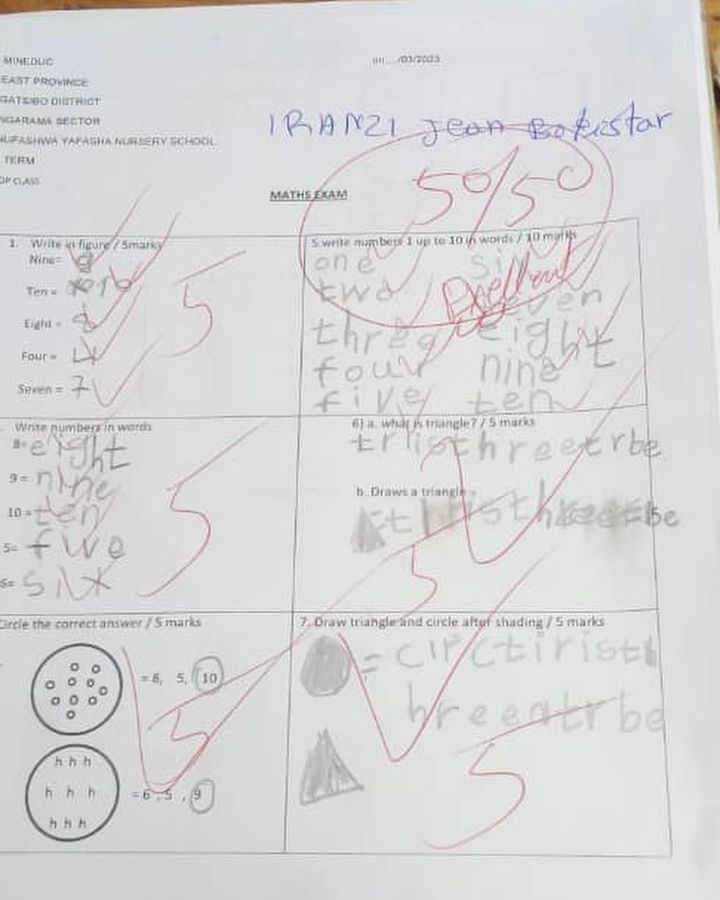 MINEDUC
/03/2023
EAST PROVINCE
GATSIBO DISTRICT
NGARAMA SECTOR
IRANZI Jean
YAFASHA NURSERY SCHOOL
TERM
CLASS
50/50
MATHS EXAM
1. Write in figure / 5marks
Nine= 9
Ten = 10
Eight = 8
Four = 4
Seven = 7
5
5. write numbers 1 up to 10 in words / 10 marks
one six
two seven
Excellent
three eight
four nine
five ten
Write numbers in words
8= eight
9 = nine
10 = ten
5= five
6= six
5
6) a. what is triangle? / 5 marks
b. Draws a triangle
5
Circle the correct answer / 5 marks
= 8, 5, 10
5
h h h
h h h
h h h
= 6, 5, 9
7. Draw triangle and circle after shading / 5 marks
5